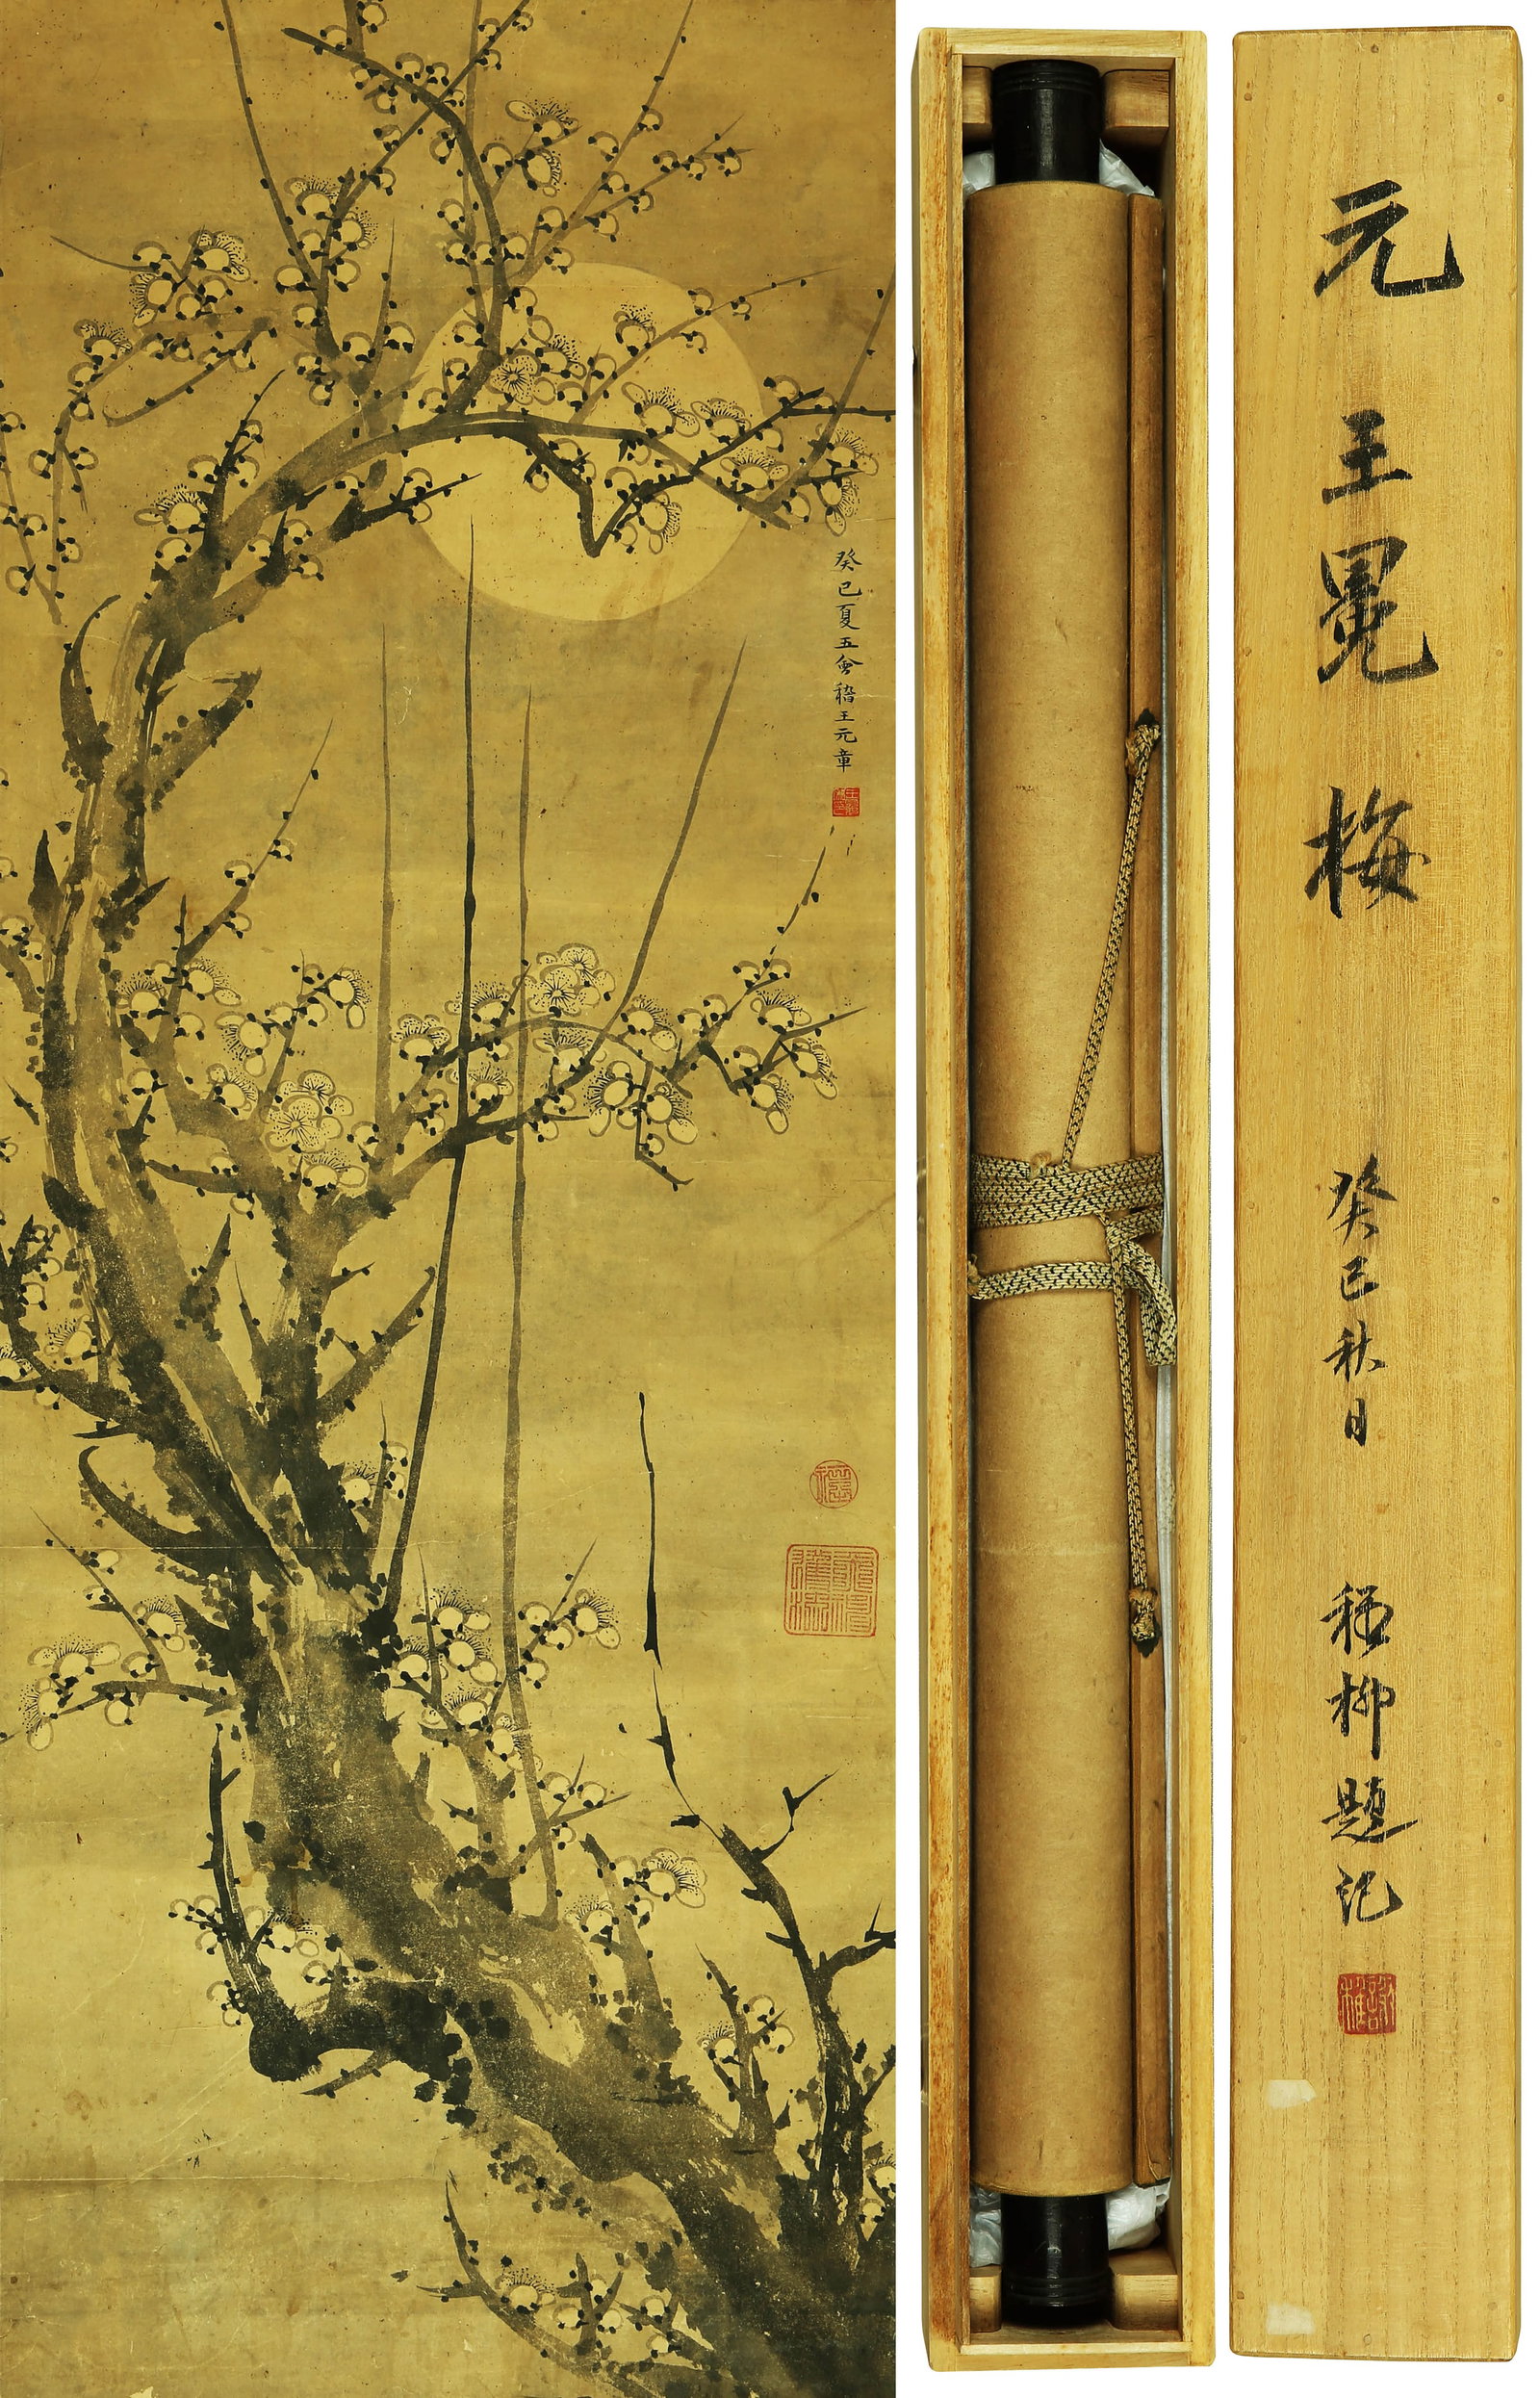 癸巳夏五會稽王元章
元 王冕 梅
癸巳秋日 稚柳題記